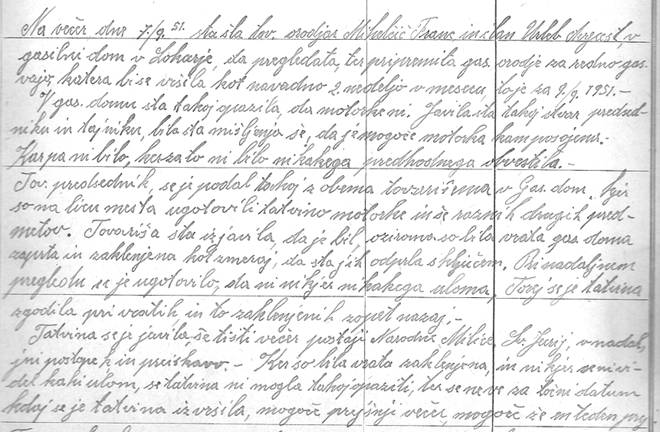 Na večer dne 7./9. 51. sta šla tov. orodjar Mihelčič Franc in član Urleb Avgust, v
gasilni dom v Lokarje, da pregledata, ter pripremita gas. orodje za redno gas.
vajo, katera bi se vršila kot navadno 2. nedeljo v mesecu, to je za 9./9. 1951.-
V gas. domu sta takoj opazila, da motorke ni. Javila sta takoj stvar predsed-
niku in tajniku, bila sta mišljenja se, da je mogoče motorka kam posojena.-
Kar pa ni bilo, ker za to ni bilo nikakega predhodnega obvestila.-
Tov. predsednik, se je podal takoj z obema tovarišema v Gas. dom, kjer
so na licu mesta ugotovili tatvino motorke in še raznih drugih pred-
metov. Tovariša sta izjavila, da je bil, oziroma so bila vrata gas. doma
zaprta in zaklenjena kot zmeraj, da sta jih odprla s ključem, Pri nadaljnem
pregledu se je ugotovilo, da ni nikjer nikakega uloma, Torej se je tatvina
zgodila pri vratih in to zaklenjenih zopet nazaj.-
Tatvina se je javila, še tisti večer postaji Narodne Milice, Sv. Jurij, v nadal-
jni postopek in preiskavo.- Ker so bila vrata zaklenjena, in nikjer se ni vi-
del kaki ulom, se tatvina ni mogla takoj opaziti, ter se ne ve za točni datum
kdaj se je tatvina izvršila, mogoče prejšnji večer, mogoče že en teden prej